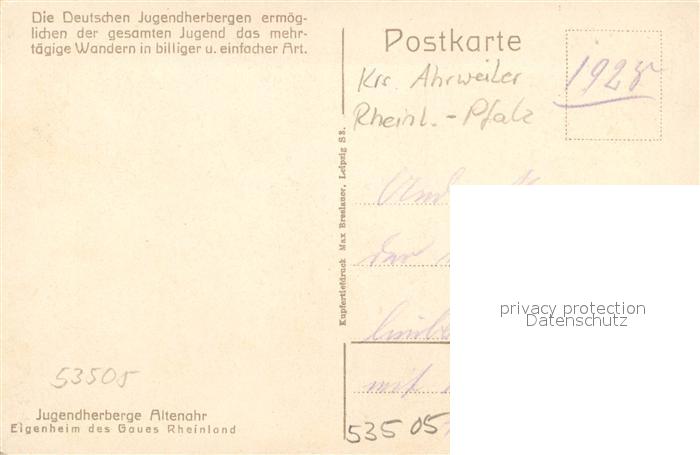 Die Deutschen Jugendherbergen ermög-
lichen der gesamten Jugend das mehr-
tägige Wandern in billiger u. einfacher Art.
Postkarte
Krs. Ahrweiler
Rheinl.-Pfalz
1928
Kupfertiefdruck Max Breslauer, Leipzig S 3.
der
mit
privacy protection
Datenschutz
53505
Jugendherberge Altenahr
Eigenheim des Gaues Rheinland
53505